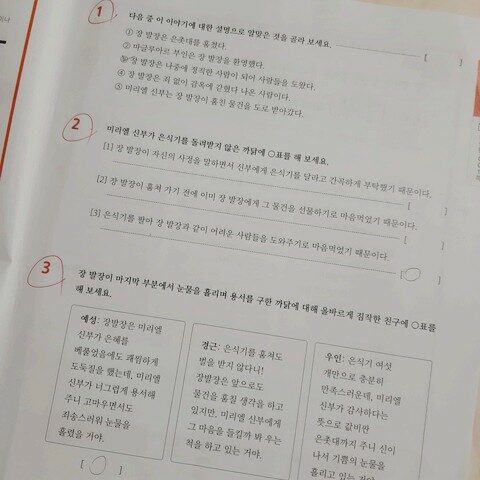 1
다음 중 이 이야기에 대한 설명으로 알맞은 것을 골라 보세요. [ ]
① 장 발장은 은촛대를 훔쳤다.
② 마글루아르 부인은 장 발장을 환영했다.
③ 장 발장은 나중에 정직한 사람이 되어 사람들을 도왔다.
④ 장 발장은 죄 없이 감옥에 갇혔다 나온 사람이다.
⑤ 미리엘 신부는 장 발장이 훔친 물건을 도로 받아갔다.
2
미리엘 신부가 은식기를 돌려받지 않은 까닭에 ○표를 해 보세요.
[1] 장 발장이 자신의 사정을 말하면서 신부에게 은식기를 달라고 간곡하게 부탁했기 때문이다.
[ ]
[2] 장 발장이 훔쳐 가기 전에 이미 장 발장에게 그 물건을 선물하기로 마음먹었기 때문이다.
[ ]
[3] 은식기를 팔아 장 발장과 같이 어려운 사람들을 도와주기로 마음먹었기 때문이다.
[ ○ ]
3
장 발장이 마지막 부분에서 눈물을 흘리며 용서를 구한 까닭에 대해 올바르게 짐작한 친구에 ○표를
해 보세요.
예성: 장발장은 미리엘
신부가 은혜를
베풀었음에도 괘씸하게
도둑질을 했는데, 미리엘
신부가 너그럽게 용서해
주니 고마우면서도
죄송스러워 눈물을
흘렸을 거야.
[ ○ ]
경근: 은식기를 훔쳐도
벌을 받지 않다니!
장발장은 앞으로도
물건을 훔칠 생각을 하고
있지만, 미리엘 신부에게
그 마음을 들킬까 봐 우는
척을 하고 있는 거야.
우인: 은식기 여섯
개만으로 충분히
만족스러운데, 미리엘
신부가 감사하다는
뜻으로 값비싼
은촛대까지 주니 신이
나서 기쁨의 눈물을
흘리고 있는 거야.